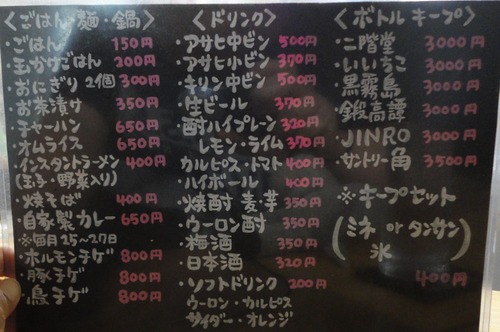 〈ごはん・麺・鍋〉
・ごはん 150円
・玉かけごはん 200円
・おにぎり 2個 300円
・お茶漬け 350円
・チャーハン 650円
・オムライス 650円
・インスタントラーメン 400円
(玉子・野菜入り)
・焼そば 400円
・自家製カレー 650円
※毎月25~27日
・ホルモンチゲ 800円
・豚チゲ 800円
・鳥チゲ 800円
〈ドリンク〉
・アサヒ中ビン 500円
・アサヒ小ビン 370円
・キリン中ビン 500円
・生ビール 370円
・酎ハイプレーン 320円
レモン・ライム 370円
カルピス・トマト 400円
・ハイボール 400円
・焼酎 麦・芋 350円
・ウーロン酎 350円
・梅酒 350円
・日本酒 320円
・ソフトドリンク 200円
ウーロン・カルピス
サイダー・オレンジ
〈ボトルキープ〉
・二階堂 3000円
・いいちこ 3000円
・黒霧島 3000円
・鍛高譚 3000円
・JINRO 3000円
・サントリー角 3500円
※キープセット
(ミネ or タンサン)
氷
400円